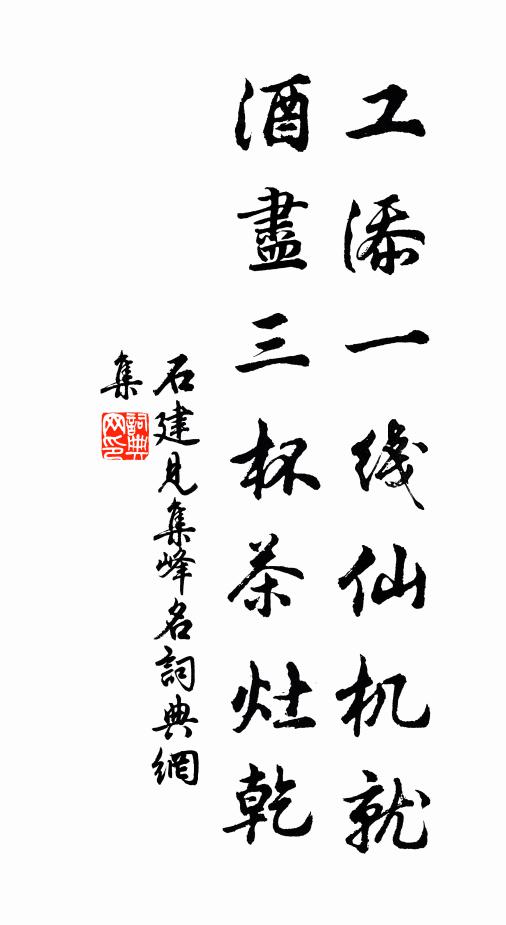 工添一线仙机就
酒盡三杯茶灶乾
石建見集峰名詞典網
集
詞典
网印